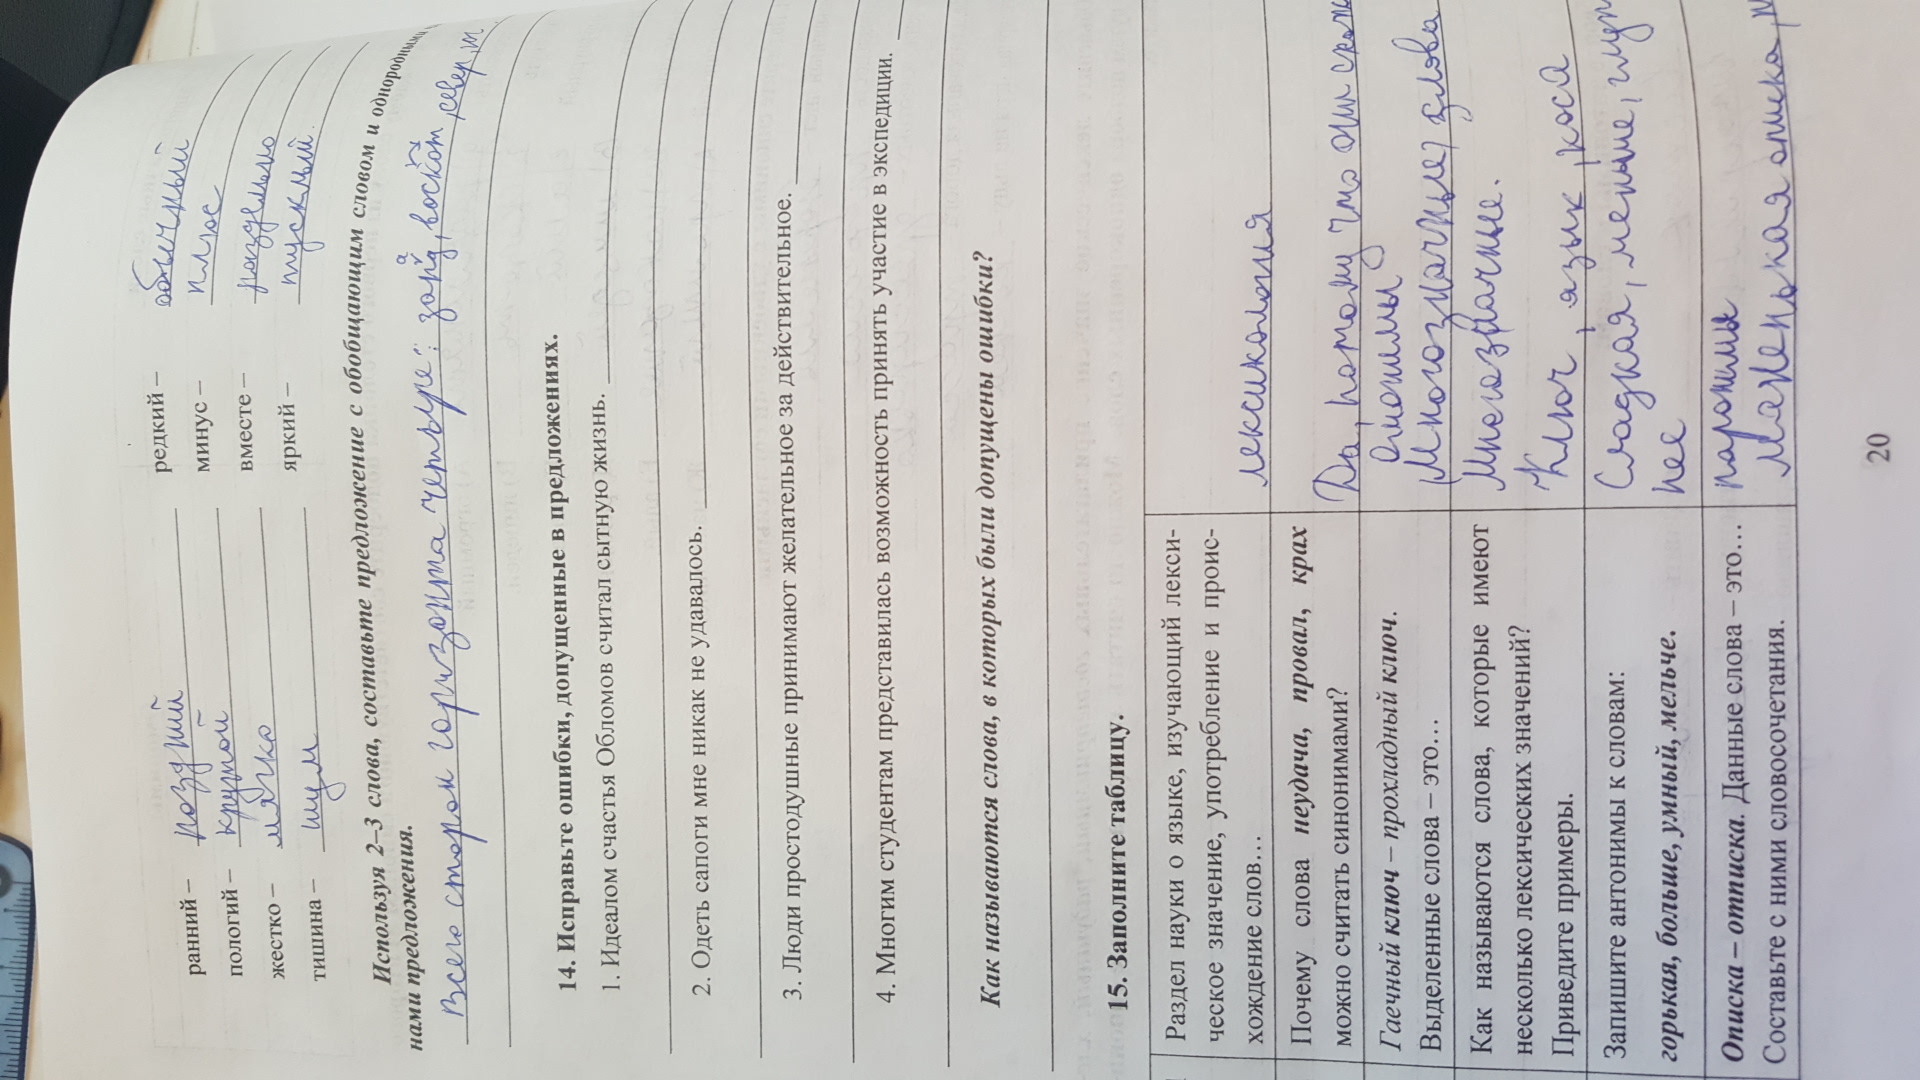 ранний – поздний редкий – обычный
пологий – крутой минус – плюс
жестко – мягко вместе – раздельно
тишина – шум яркий – тусклый.
Используя 2–3 слова, составьте предложение с обобщающим словом и однородными
нами предложения.
Всего сторон горизонта четыре: запад, восток, север,
14. Исправьте ошибки, допущенные в предложениях.
1. Идеалом счастья Обломов считал сытную жизнь.
2. Одеть сапоги мне никак не удавалось.
3. Люди простодушные принимают желательное за действительное.
4. Многим студентам представилась возможность принять участие в экспедиции.
Как называются слова, в которых были допущены ошибки?
15. Заполните таблицу.
Раздел науки о языке, изучающий лекси-
ческое значение, употребление и проис-
хождение слов… лексикология
Почему слова неудача, провал, крах Да, потому что они
можно считать синонимами?
Гаечный ключ – прохладный ключ. Омонимы
Выделенные слова – это… Многозначные слова
Как называются слова, которые имеют Многозначные.
несколько лексических значений?
Приведите примеры. Ключ, язык, коса
Запишите антонимы к словам: Сладкая, меньше,
горькая, больше, умный, мельче.
Описка – отписка. Данные слова – это… паронимы
Составьте с ними словосочетания. Маленькая описка
20